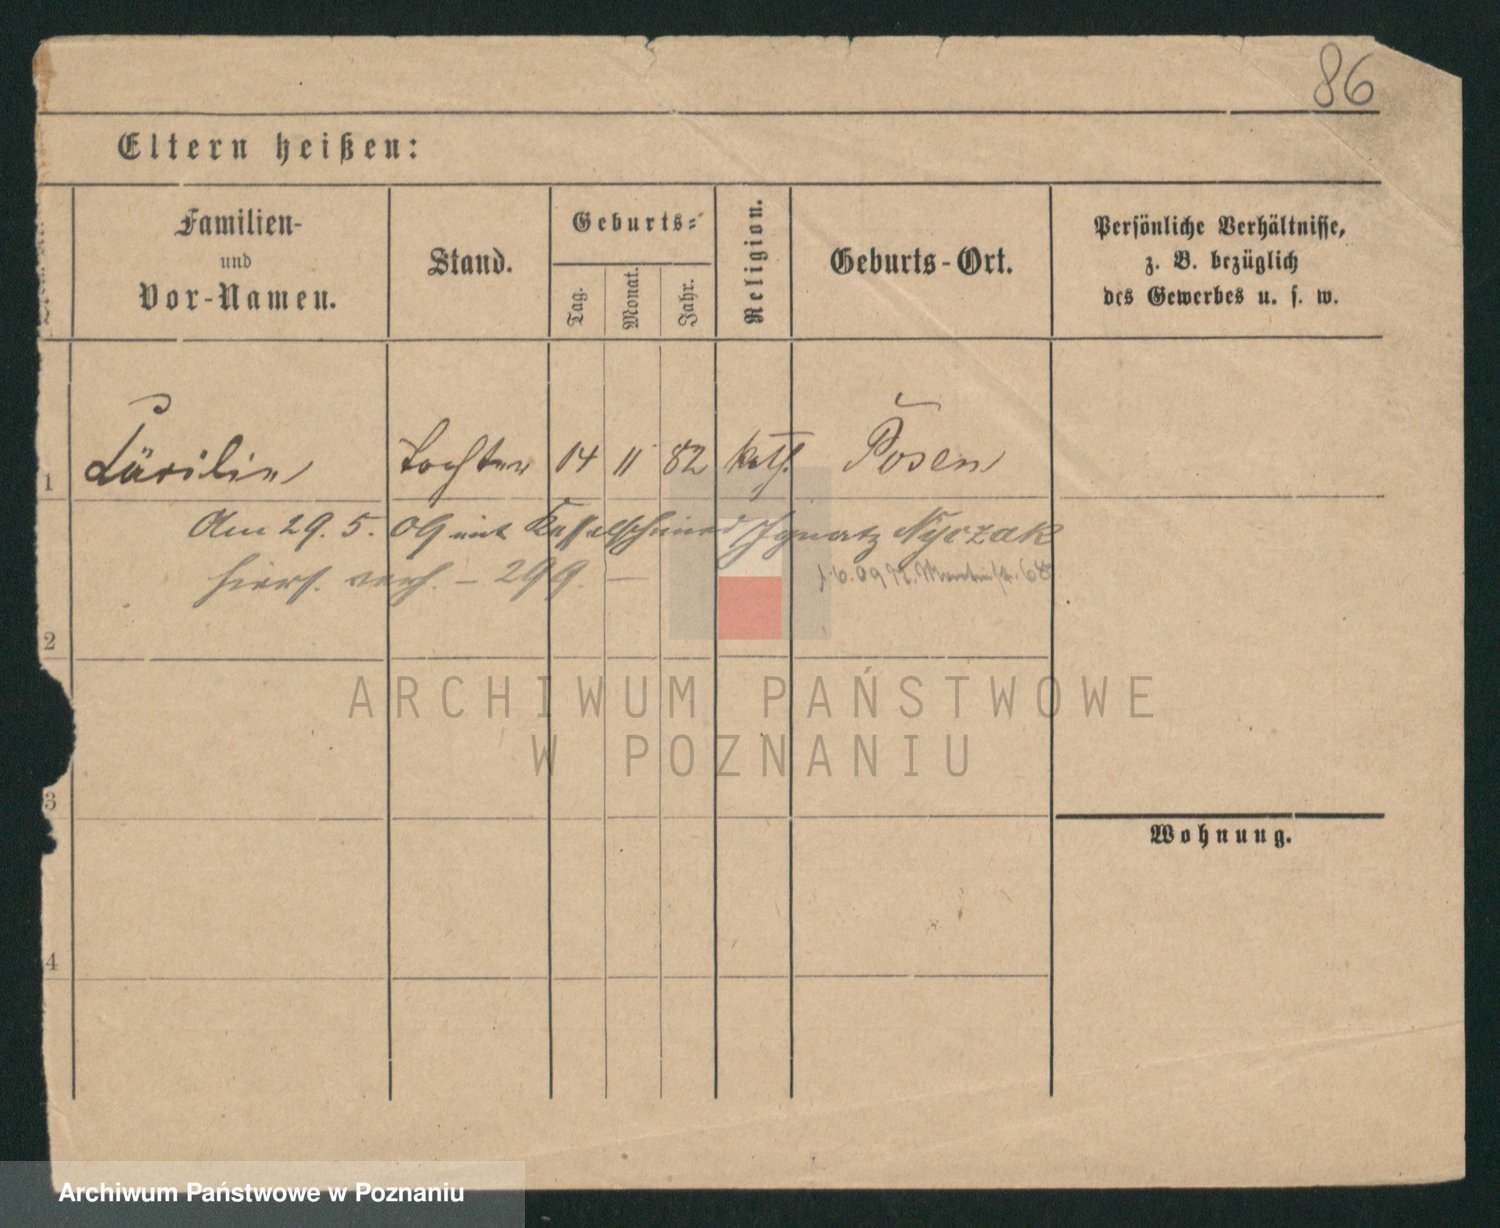 86
Eltern heißen:
Familien-
und
Vor-Namen.
Stand.
Geburts-
Tag.
Monat.
Jahr.
Religion.
Geburts-Ort.
Persönliche Verhältnisse,
z. B. bezüglich
des Gewerbes u. s. w.
1 Tochter 14 11 82 kath. Posen
Am 29. 5. 09 mit Kesselschmied Ignatz Nyczak
hiers. verh. — 299. —
1.6.09 St. Martinstr. 68
2
ARCHIWUM PAŃSTWOWE
W POZNANIU
3
Wohnung.
4
Archiwum Państwowe w Poznaniu